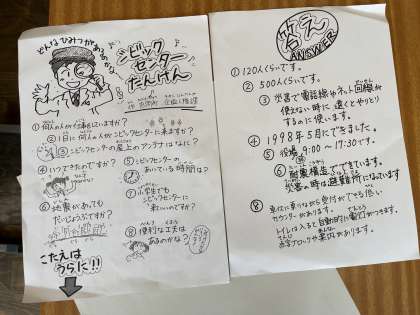 どんなひみつがあるのかな
シビック
センター
たんけん
①何人の人が仕事していますか?
②1日に何人の人がシビックセンターに来ますか?
③シビックセンターの屋上のアンテナはなに?
④いつできたのですか?
⑤シビックセンターの
あいている時間は?
⑥地震があっても
だいじょうぶですか?
⑦小学生でも
シビックセンターに
来ていいのですか?
⑧便利な工夫は
あるのかな?
こたえは
うらに!!
答え
ANSWER
①120人くらいです。
②500人くらいです。
③災害で電話線やネット回線が
使えない時に遠くとやりとり
するのに使います。
④1998年5月にできました。
⑤役場 9:00〜17:30です。
⑥耐震構造でできています。
災害の時は避難所になっています
⑧車いすに乗りながら受付ができる低い
カウンターがあります。
トイレは入ると自動的に電灯がつきます。
点字ブロックや案内があります。